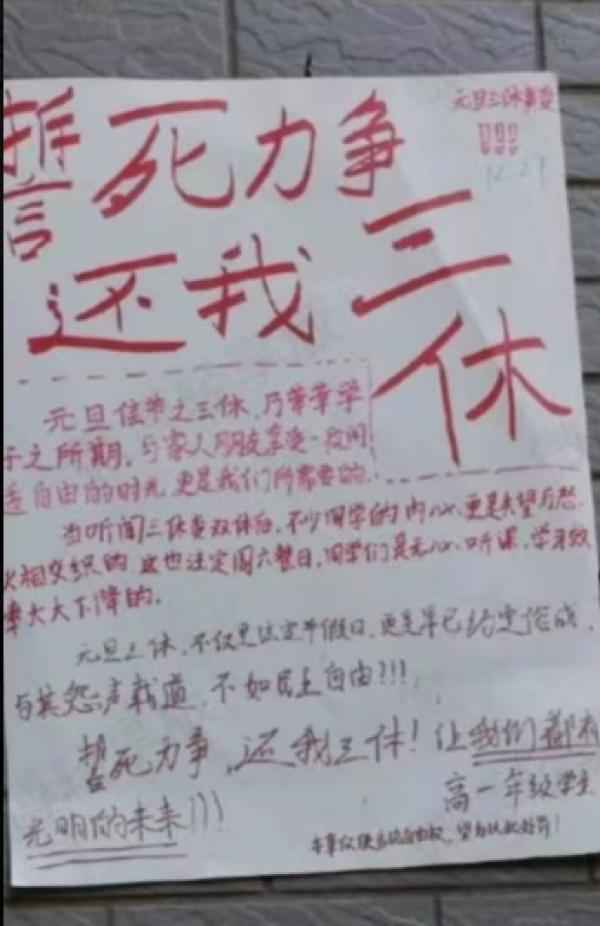 元旦三休事宜
!!!
12.27
誓死力争
还我三休
元旦佳节之三休,乃莘莘学
子之所期,与家人朋友享受一段闲
适自由的时光,更是我们所需要的。
当听闻三休变双休后,不少同学的内心,更是失望与怒
火相交织的,这也注定周六整日,同学们是无心听课,学习效
率大大下降的。
元旦三休,不仅是法定节假日,更是早已约定俗成,
与其怨声载道,不如民主自由!!!
誓死力争,还我三休!让我们都有
光明的未来!!!
高一年级学生